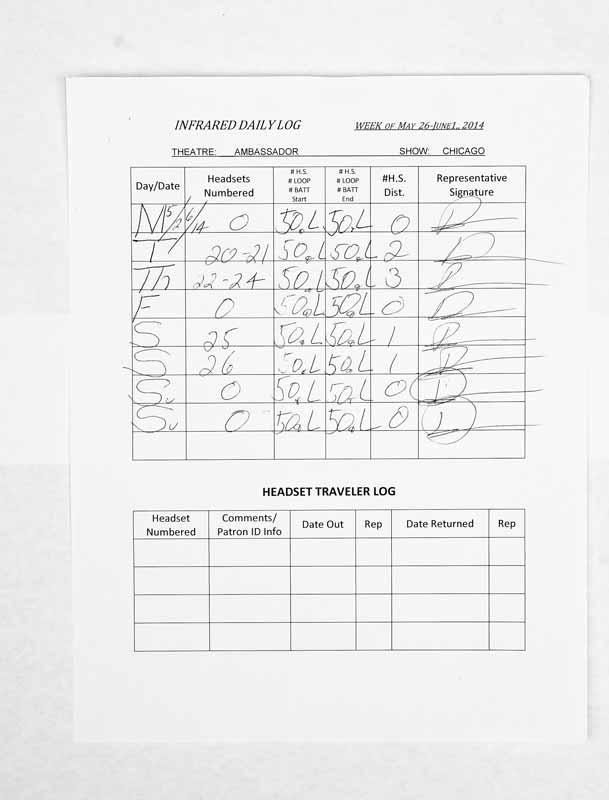 INFRARED DAILY LOG WEEK OF MAY 26-JUNE1., 2014
THEATRE: AMBASSADOR SHOW: CHICAGO
Day/Date Headsets Numbered # H.S. # LOOP # BATT Start # H.S. # LOOP # BATT End #H.S. Dist. Representative Signature
M 5/26/14 0 50.L 50.L 0
T 20-21 50.L 50.L 2
Th 22-24 50.L 50.L 3
F 0 50.L 50.L 0
S 25 50.L 50.L 1
S 26 50.L 50.L 1
Su 0 50.L 50.L 0
Su 0 50.L 50.L 0
HEADSET TRAVELER LOG
Headset Numbered Comments/ Patron ID Info Date Out Rep Date Returned Rep